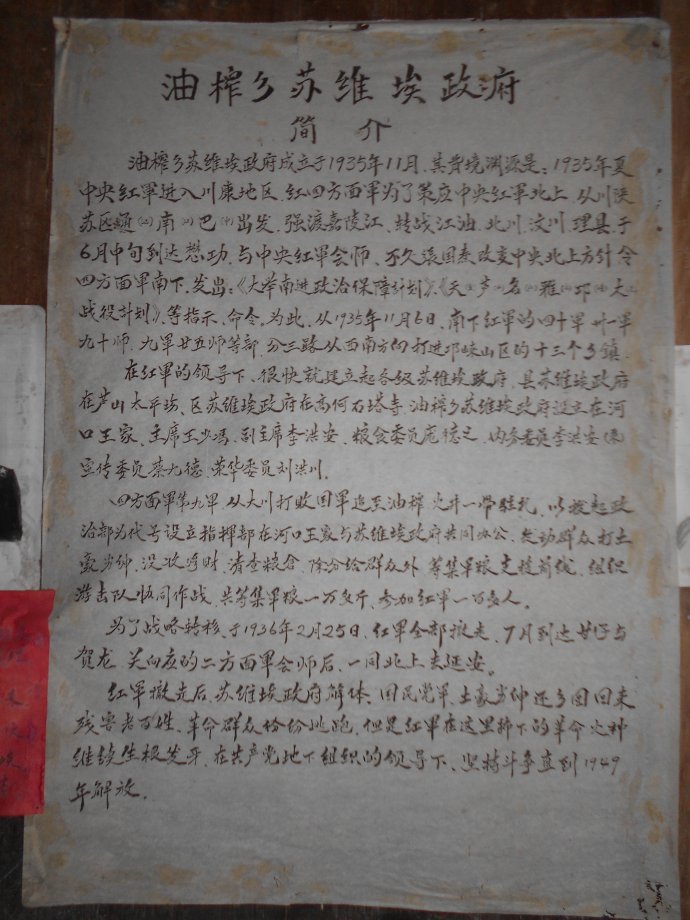 油榨乡苏维埃政府
简介
油榨乡苏维埃政府成立于1935年11月，其背境渊源是：1935年夏
中央红軍进入川康地区，红四方面軍为了策应中央红軍北上，从川陕
苏区通(江)南(江)巴(中)出发，强渡嘉陵江，转战江油，北川，汶川，理县，于
6月中旬到达懋功，与中央红軍会师，不久張国焘改变中央北上方针令
四方面軍南下，发出：《大举南进政治保障计划》、《天芦名雅邛大
战役计划》等指示，命令。为此，从1935年11月6日，南下红軍的四十軍卅一軍
九十师，九軍廿五师等部，分三路从西南方向打进邛崃山区的十三个乡镇。
在红軍的领导下、很快就建立起各级苏维埃政府，县苏维埃政府
在芦山太平场，区苏维埃政府在高何石塔寺，油榨乡苏维埃政府设立在河
口王家，主席王少馮，副主席李洪安，粮食委员庞德之，内务委员李洪安(兼
宣传委员蔡九德，荣华委员刘洪川。
四方面軍第九軍，从大川打败回軍追至油榨，火井一带驻扎，以
治部为代号设立指揮部在河口王家与苏维埃政府共同办公，发动群众打土
豪劣钟，没收浮财，清查粮仓，除分给群众外，筹集軍粮支援前线，组织
游击队伍同作战，共筹集軍粮一万多斤，参加红軍一百多人。
为了战略转移，于1936年2月25日，红軍全部撤走，7月到达甘孜与
贺龙，关向应的二方面軍会师后，一同北上去延安。
红軍撤走后，苏维埃政府解体，国民党軍，土豪劣钟还乡团回来
残害老百姓，革命群众份份逃跑，但是红軍在这里撒下的革命火种
继续生根发牙，在共产党地下组织的领导下，坚持斗争直到1949
年解放。